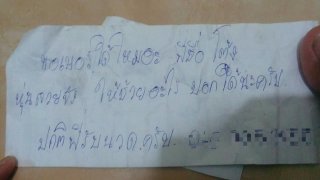 ขอเบอร์ได้ไหมอะ พี่ชื่อ โต้ง
หุ่นสวยจัง ให้ช่วยอะไร บอกได้นะครับ
ปกติพี่รับนวด ครับ